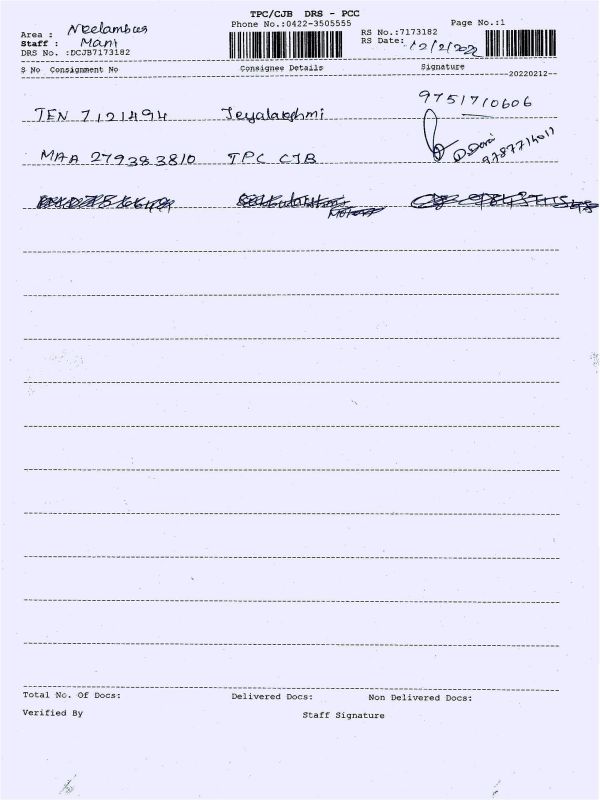 TPC/CJB DRS - PCC
Phone No.:0422-3505555
Page No.:1
Area : Neelambur
RS No.:7173182
Staff : Mani
RS Date: 12/2/2022
DRS No. :DCJB7173182
S No Consignment No Consignee Details Signature
20220212
TEN 7121494 Jeyalakshmi 9751710606
MAA 279383810 TPC CJB
Total No. Of Docs: Delivered Docs: Non Delivered Docs:
Verified By Staff Signature